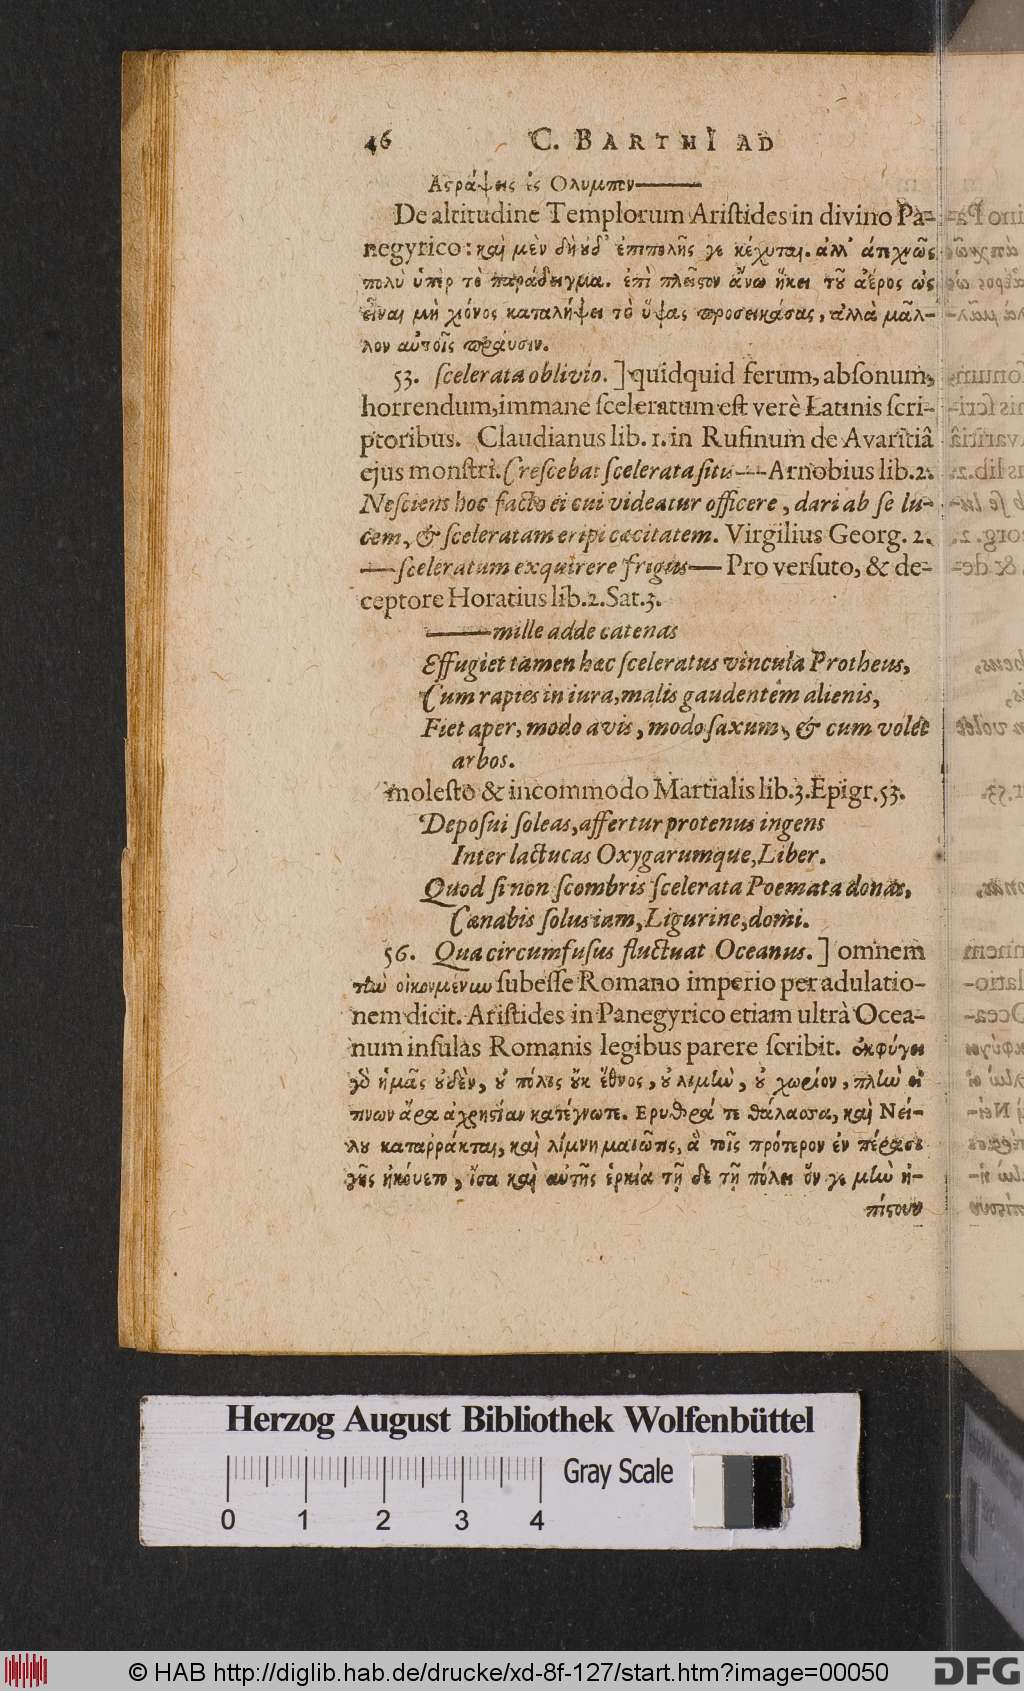 46 C. BARTHI AD
Αςράψεις ἐς Ολυμπον———
De altitudine Templorum Ariſtides in divino Pa-
negyrico: καὶ μὲν δὴ ουδ᾽ ἐπιπολῆς γε κέχυται. ἀλλ᾽ ἀτεχνῶς
πολὺ ὑπὲρ τὸ παράδειγμα. ἐπὶ πλεῖςον ἄνω ἥκει τοῦ ἀέρος ὡς
εἶναι μὴ χιόνος καταλήψει τὸ ὕψας προσεικάσας, ἀλλὰ μᾶλ-
λον αὐτοῖς
53. ſcelerata oblivio. ] quidquid ferum, abſonum,
horrendum, immane ſceleratum eſt verè Latinis ſcri-
ptoribus. Claudianus lib. 1. in Rufinum de Avaritiâ
ejus monſtri. Creſcebat ſcelerata ſitu —— Arnobius lib. 2.
Neſciens hoc facto ei cui videatur officere, dari ab ſe lu-
cem, & ſceleratam eripi cæcitatem. Virgilius Georg. 2.
—— ſceleratum exquirere frigus —— Pro verſuto, & de-
ceptore Horatius lib. 2. Sat. 3.
——— mille adde catenas
Effugiet tamen hæc ſceleratus vincula Protheus,
Cum rapies in iura, malis gaudentem alienis,
Fiet aper, modo avis, modo ſaxum, & cum volet
arbos.
moleſto & incommodo Martialis lib. 3. Epigr. 53.
Depoſui ſoleas, affertur protenus ingens
Inter lactucas Oxygarumque, Liber.
Quod ſi non ſcombris ſcelerata Poemata donas,
Cænabis ſolus iam, Ligurine, domi.
56. Qua circumfuſus fluctuat Oceanus. ] omnem
τὴν οἰκουμενην ſubeſſe Romano imperio per adulatio-
nem dicit. Ariſtides in Panegyrico etiam ultrà Ocea-
num inſulas Romanis legibus parere ſcribit. ἐκφύγει
γὸ ἡμᾶς οὐδὲν, οὐ πόλις οὐκ ἔθνος, οὐ λιμὴν, οὐ χωρίον, πλὴν εἴ
τινων ἄρα ἀχρηςίαν κατέγνωτε. Ερυθρά τε θάλασσα, καὶ Νεί-
λου καταρράκται, καὶ λίμνη μαιῶτις, ἃ τοῖς πρότερον ἐν πέρασι
γῆς ἠκούετο, ἴσα καὶ αὐτῆς ἑρκία τῇ δε τῇ πόλει ὅν γε μὴν ἠ-
πίςουν
Herzog August Bibliothek Wolfenbüttel
Gray Scale
0 1 2 3 4
© HAB http://diglib.hab.de/drucke/xd-8f-127/start.htm?image=00050
DFG